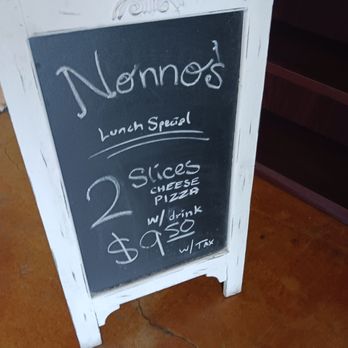 Nonno's
Lunch Special
2 Slices
CHEESE
PIZZA
w/ drink
$9.50
w/ TAX